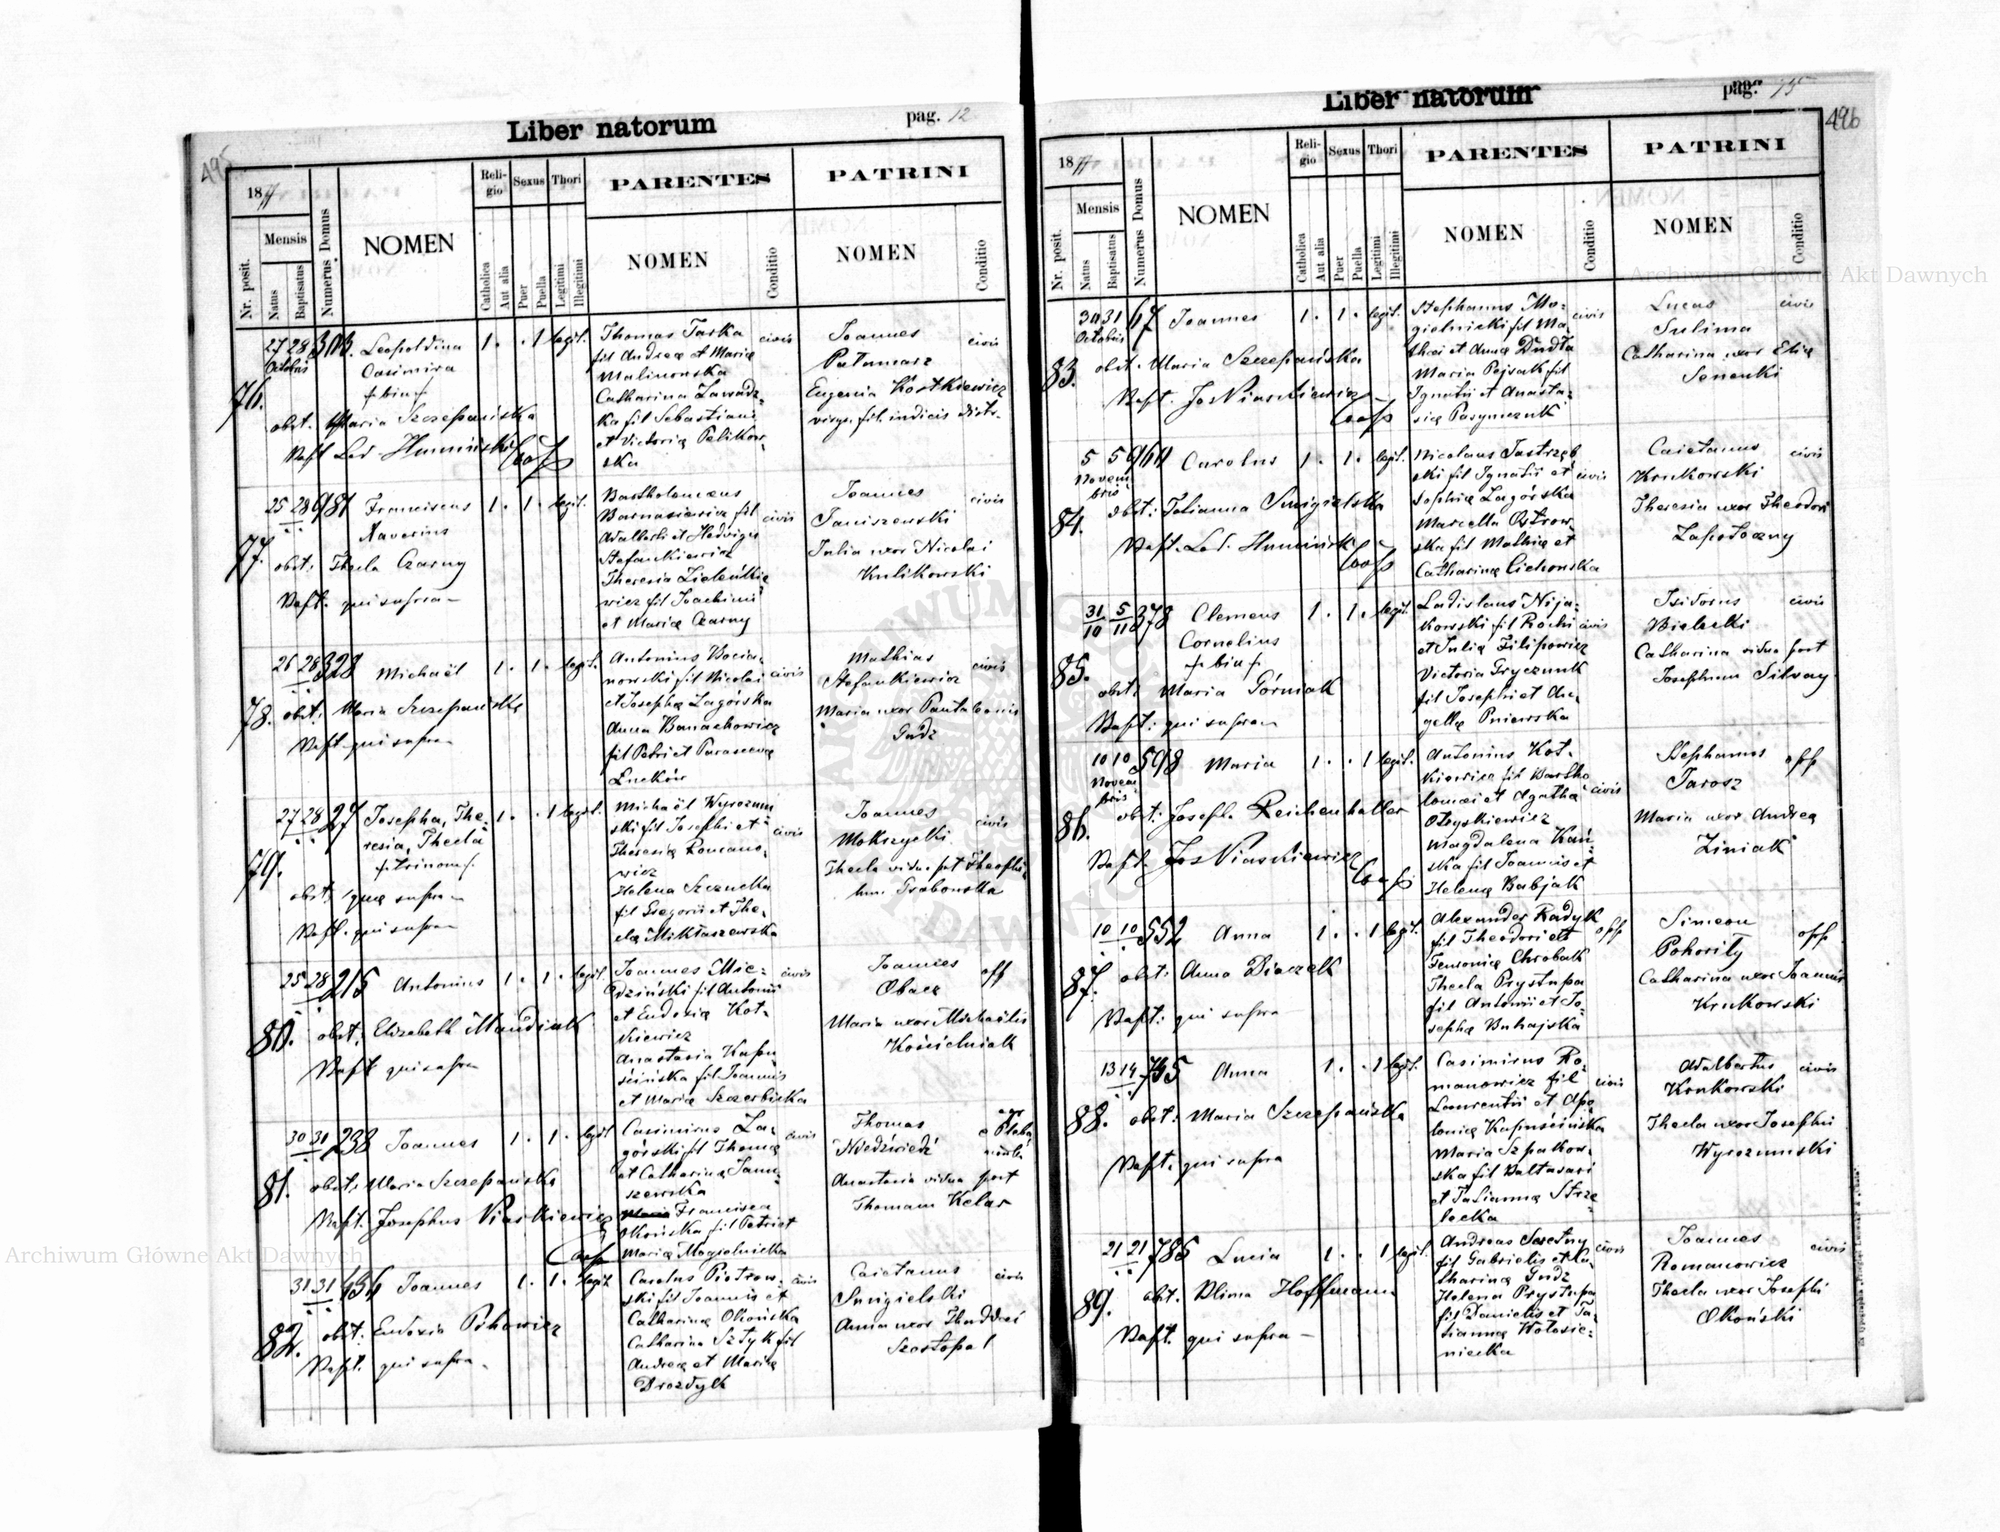 Liber natorum
pag. 12
495
18
Mensis
Nr. posit.
Natus
Baptisatus
Numerus Domus
NOMEN
Reli-
gio
Catholica
Aut alia
Sexus
Puer
Puella
Thori
Legitimi
Illegitimi
PARENTES
NOMEN
Conditio
PATRINI
NOMEN
Conditio
76.
27 28
Octobris
Leopoldina
Casimira
f. bin. f.
1 . . 1 legit.
obst. Maria Szczepańska
Bapt. Led. Humiński Coop
Thomas Tarka
fil Andreæ et Mariæ
Malinowska
Catharina Zawadz-
ka fil Sebastiani
et Victoriæ Pelikow-
ska
civis
Joannes
Palamarz
civis
Eugenia Kostkiewicz
virgo fil. iudicis distr.
77.
25 28 981
Franciscus
Xaverius
1 . 1 . legit.
obst. Thecla Czarny
Bapt. qui supra
Bartholomæus
Barnasiewicz fil
Adalberti et Hedvigis
Stefankiewicz
Theresia Zieleńkie-
wicz fil Joachimi
et Mariæ Czarny
civis
Joannes
Janiszewski
civis
Julia uxor Nicolai
Kulikowski
78.
26 28 328
Michaël
1 . 1 . legit.
obst. Maria Szczepańska
Bapt. qui supra
Antonius Bocia-
nowski fil Nicolai
et Josephæ Zagórska
Anna Banachowicz
fil Petri et Parasceuæ
civis
Mathias
Stefankiewicz
civis
Maria uxor Pantaleonis
Gudz
79.
27 28 27
Josepha, The-
resia, Thecla
f. trinom. f.
1 . . 1 legit.
obst. quæ supra
Bapt. qui supra
Michaël Wyrozum-
ski fil Josephi et
Theresiæ Romano-
wicz
Helena Szczucka
fil Gregorii et The-
clæ Mikłaszewska
civis
Joannes
Mokrzycki
civis
Thecla vidua pst Theophi-
lum Grabowska
80.
25 28 215
Antonius
1 . 1 . legit.
obst. Elisabeth Mandziuk
Bapt. qui supra
Joannes Mie-
dziński fil Antonii
et Eudoxiæ Kot-
kiewicz
Anastasia Kapu-
ścińska fil Joannis
et Mariæ Szczerbicka
civis
Joannes
Obacz
off
Maria uxor Michaëlis
Kościelniak
81.
30 31 238
Joannes
1 . 1 . legit
obst. Maria Szczepańska
Bapt. Josephus Piaskiewicz
Coop
Casimirus Za-
górski fil Thomæ
et Catharinæ Janu-
szewska
Francisca
Okońska fil Petri et
Mariæ Mogielnicka
civis
Thomas
Niedźwiedź
Anastasia vidua post
Thomam Kelar
82.
31 31
Joannes
1 . 1 . legit.
obst. Eudoxia Pohowicz
Bapt. qui supra
Carolus Piotrow-
ski fil Joannis et
Catharinæ Okońska
Catharina Sztyk fil
Andreæ et Mariæ
Drozdyk
civis
Caietanus
Smigielski
civis
Anna uxor Thaddæi
Szostopal
Liber natorum
pag. 15
496
18
Mensis
Nr. posit.
Natus
Baptisatus
Numerus Domus
NOMEN
Reli-
gio
Catholica
Aut alia
Sexus
Puer
Puella
Thori
Legitimi
Illegitimi
PARENTES
NOMEN
Conditio
PATRINI
NOMEN
Conditio
83.
30 31 67
Octobris
Joannes
1 . 1 . legit.
obst. Maria Szczepańska
Bapt. Jos Piaskiewicz
Coop
Stephanus Mo-
gielnicki fil Ma-
thæi et Annæ Dudta
Maria Pejsak fil
Ignatii et Anasta-
siæ Pasymczuk
civis
Lucas
Sulima
civis
Catharina uxor Eliæ
Senenki
84.
5 5
Novem
bris
Carolus
1 . 1 . legit.
obst. Julianna Smigielska
Bapt. Led. Humiński
Coop
Nicolaus Jastrzęb-
ski fil Ignatii et
Sophiæ Zagórska
Marcella Ostrow-
ska fil Mathiæ et
Catharinæ Cichonska
civis
Caietanus
Krukowski
civis
Theresia uxor Theodori
Zapotoczny
85.
31 5 378
10 11
Clemens
Cornelius
f. bin. f.
1 . 1 . legit.
obst. Maria Górniak
Bapt. qui supra
Ladislaus Nija-
kowski fil Rochi
et Juliæ Filipowicz
Victoria Gryczuk
fil Josephi et An-
gelæ Pniewska
civis
Isidorus
Bielecki
civis
Catharina vidua post
Josephum Silvay
86.
10 10 598
Novem
bris
Maria
1 . . 1 legit.
obst. Joseph. Reichenhaller
Bapt. Jos Piaskiewicz
Coop
Antonius Kot-
kiewicz fil Bartho-
lomæi et Agathæ
Otryskiewicz
Magdalena Kań-
ska fil Joannis et
Helenæ Babjak
civis
Stephanus
Jarosz
off
Maria uxor Andreæ
Ziniak
87.
10 10 552
Anna
1 . . 1 legit.
obst. Anna Diaczek
Bapt. qui supra
Alexander Radyk
fil Theodori et
Fenoniæ Chrobak
Thecla Prystupa
fil Antonii et Jo-
sephæ Buhajska
off
Simeon
Pohoriły
off
Catharina uxor Joannis
Krukowski
88.
13 14 735
Anna
1 . . 1 legit.
obst. Maria Szczepańska
Bapt. qui supra
Casimirus Ro-
manowicz fil
Laurentii et Apo-
loniæ Kapuścińska
Maria Szpakow-
ska fil Baltasari
et Tatiannæ Strze-
lecka
civis
Adalbertus
Krukowski
civis
Thecla uxor Josephi
Wyrozumski
89.
21 21 785
Lucia
1 . . 1 legit.
obst. Alima Hoffmann
Bapt. qui supra
Andreas Szetny
fil Gabrielis et Ca-
tharinæ Gudz
Helena Prystupa
fil Danielis et Ta-
tiannæ Wołosie-
niecka
civis
Joannes
Romanowicz
civis
Thecla uxor Josephi
Okoński
Archiwum Główne Akt Dawnych
Archiwum Główne Akt Dawnych